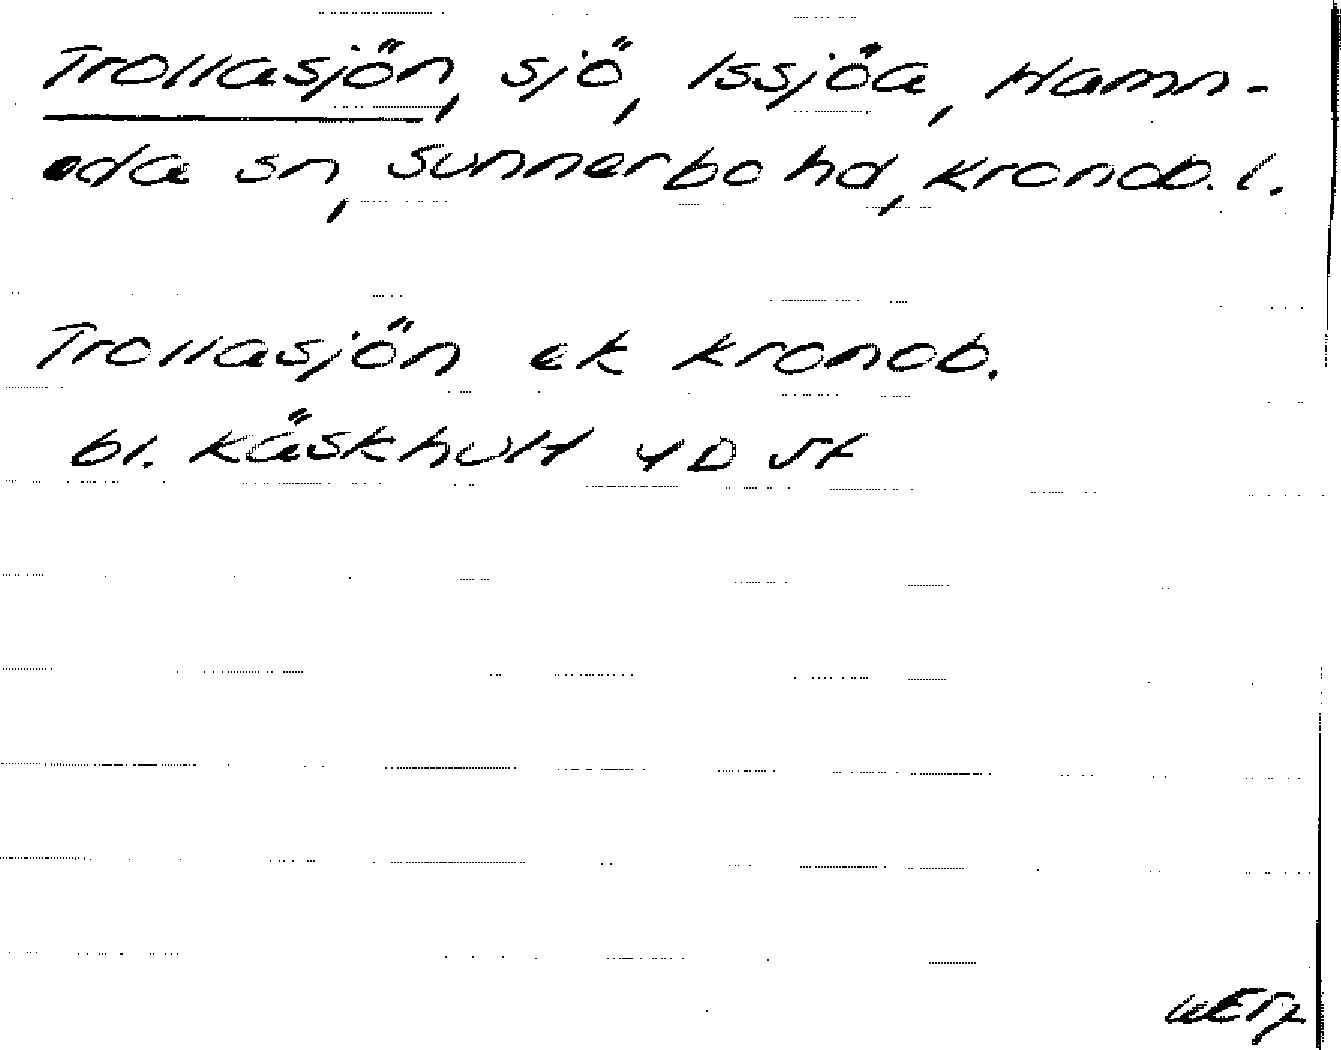 Trollasjön, sjö, Issjöa, Hamn-
eda sn, Sunnerbo hd, Kronob. l.
Trollasjön ek Kronob.
bl. Kåskhult 4D